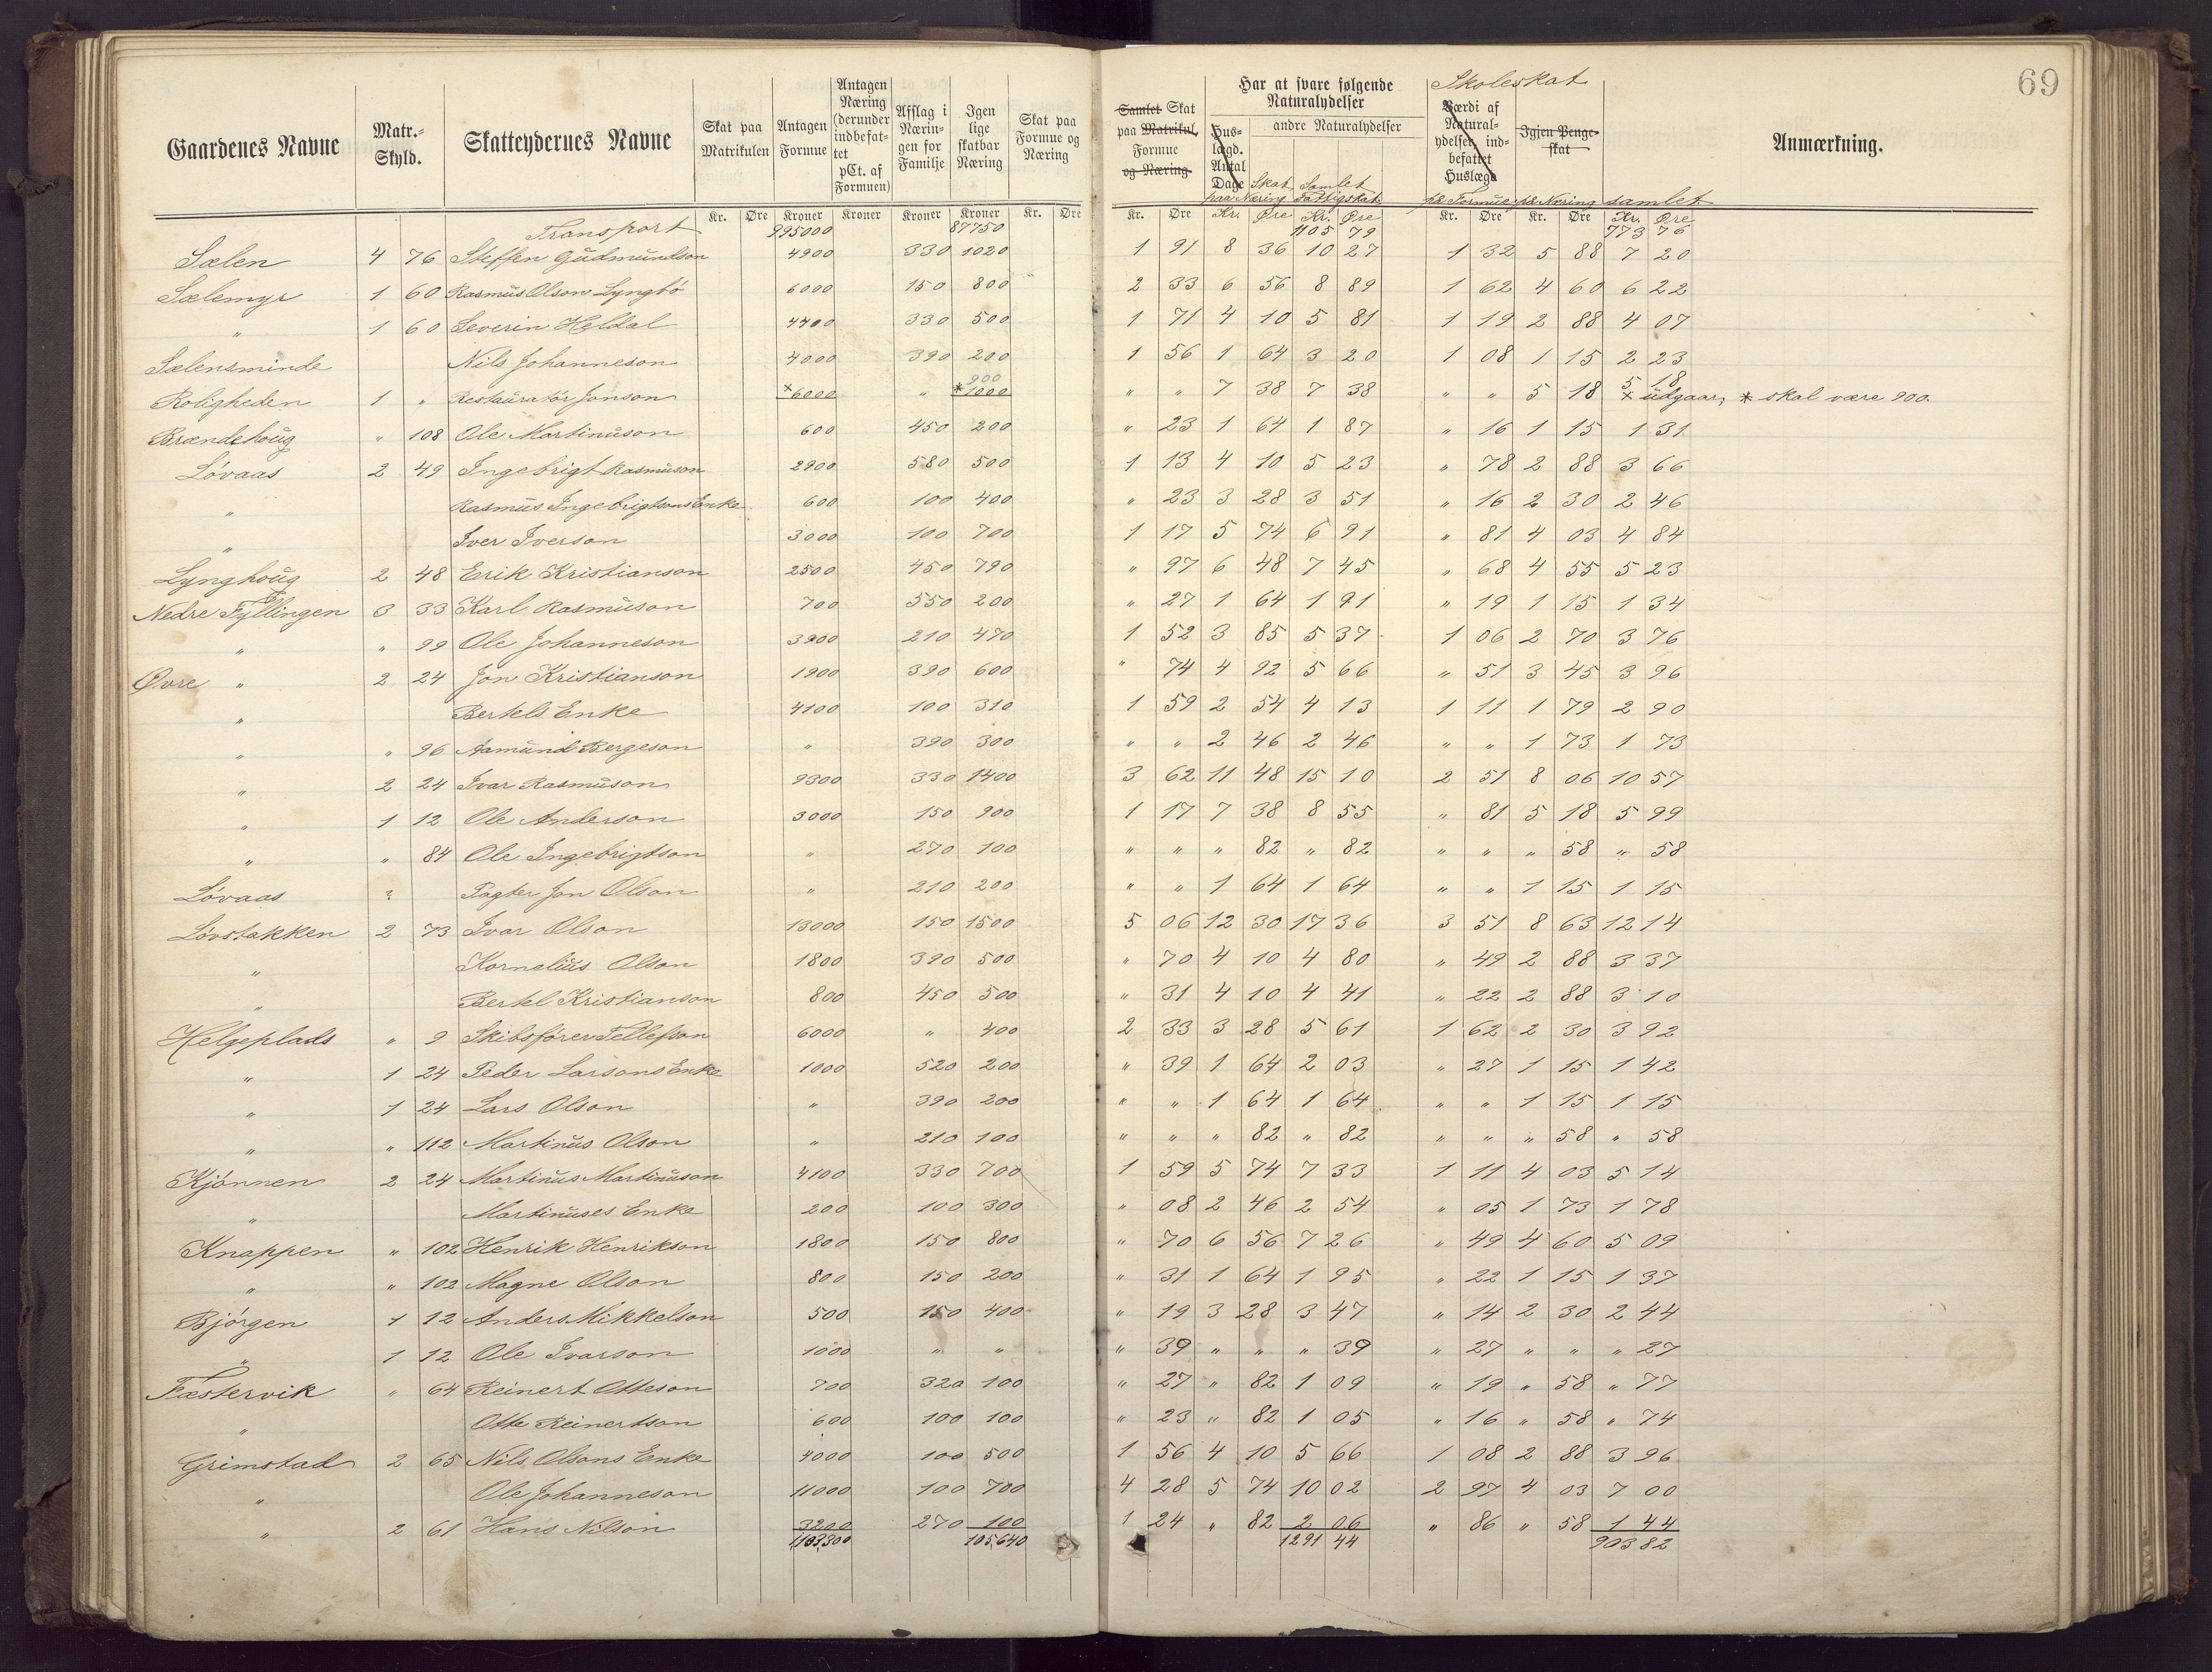 69
Gaardenes Navne | Matr.-Skyld. | Skatteydernes Navne | Skat paa Matrikulen | Antagen Formue | Antagen Næring (derunder indbefattet pCt. af Formuen) | Afslag i Næringen for Familje | Igen lige skatbar Næring | Skat paa Formue og Næring | Samlet Skat paa Matrikul, Formue og Næring. | Har at svare følgende Naturalydelser | Huslægd. Antal Dage | andre Naturalydelser | Skat paa Næring | Samlet Fattigskat. | Skoleskat | Værdi af Naturalydelser, indbefattet Huslægd | Igjen Pengeskat | paa Formue | paa Næring | samlet | Anmærkning.
Kr. Øre | Kroner | Kroner | Kroner | Kroner | Kr. Øre | Kr. Øre | Kr. Øre | Kr. Øre | Kr. Øre | Kr. Øre | Kr. Øre
Transport 995000 87750 1105 79 773 76
Sælen 4 76 Steffen Gudmundson 4900 330 1020 1 91 8 36 10 27 1 32 5 88 7 20
Sælemyr 1 60 Rasmus Olson Lyngbö 6000 150 800 2 33 6 56 8 89 1 62 4 60 6 22
" 1 60 Severin Heldal 4400 330 500 1 71 4 10 5 81 1 19 2 88 4 07
Sælensminde Nils Johanneson 4000 390 200 1 56 1 64 3 20 1 08 1 15 2 23
Roligheden 1 " Restauratör Janson ×6000 " 900 *1000 " " 7 38 7 38 " " 5 18 5 18 × udgaar, * skal være 900.
Brændehoug " 108 Ole Martinuson 600 450 200 " 23 1 64 1 87 " 16 1 15 1 31
Lövaas 2 49 Ingebrigt Rasmuson 2900 580 500 1 13 4 10 5 23 " 78 2 88 3 66
" Rasmus Ingebrigtsons Enke 600 100 400 " 23 3 28 3 51 " 16 2 30 2 46
" Iver Iverson 3000 100 700 1 17 5 74 6 91 " 81 4 03 4 84
Lynghoug 2 48 Erik Kristianson 2500 450 790 " 97 6 48 7 45 " 68 4 55 5 23
Nedre Fyllingen 3 33 Karl Rasmuson 700 550 200 " 27 1 64 1 91 " 19 1 15 1 34
" " 99 Ole Johanneson 3900 210 470 1 52 3 85 5 37 1 06 2 70 3 76
Øvre " 2 24 Jon Kristianson 1900 390 600 " 74 4 92 5 66 " 51 3 45 3 96
" Bertels Enke 4100 100 310 1 59 2 54 4 13 1 11 1 79 2 90
" " 96 Aamund Bergeson " 390 300 " " 2 46 2 46 " " 1 73 1 73
" 2 24 Ivar Rasmuson 9300 330 1400 3 62 11 48 15 10 2 51 8 06 10 57
" 1 12 Ole Anderson 3000 150 900 1 17 7 38 8 55 " 81 5 18 5 99
" " 84 Ole Ingebrigtson " 270 100 " " " 82 " 82 " " " 58 " 58
Lövaas ? Pagter Jon Olson " 210 200 " " 1 64 1 64 " " 1 15 1 15
Lövstakken 2 73 Ivar Olson 13000 150 1500 5 06 12 30 17 36 3 51 8 63 12 14
" Kornelius Olson 1800 390 500 " 70 4 10 4 80 " 49 2 88 3 37
" Bertel Kristianson 800 450 500 " 31 4 10 4 41 " 22 2 88 3 10
Helgeplads " 9 Skibsförer Tellefson 6000 " 400 2 33 3 28 5 61 1 62 2 30 3 92
" 1 24 Peder Larsons Enke 1000 520 200 " 39 1 64 2 03 " 27 1 15 1 42
" 1 24 Lars Olson " 390 200 " " 1 64 1 64 " " 1 15 1 15
" " 112 Martinus Olson " 210 100 " " " 82 " 82 " " " 58 " 58
Kjönnen 2 24 Martinus Martinuson 4100 330 700 1 59 5 74 7 33 1 11 4 03 5 14
" Martinuses Enke 200 100 300 " 08 2 46 2 54 " 05 1 73 1 78
Knappen " 102 Henrik Henrikson 1800 150 800 " 70 6 56 7 26 " 49 4 60 5 09
" " 102 Magne Olson 800 150 200 " 31 1 64 1 95 " 22 1 15 1 37
Bjørgen 1 12 Anders Mikkelson 500 150 400 " 19 3 28 3 47 " 14 2 30 2 44
" 1 12 Ole Ivarson 1000 " " " 39 " " " 39 " 27 " " " 27
Fæstervik " 64 Reinert Otteson 700 320 100 " 27 " 82 1 09 " 19 " 58 " 77
" Otte Reinertson 600 100 100 " 23 " 82 1 05 " 16 " 58 " 74
Grimstad 2 65 Nils Olsons Enke 4000 100 500 1 56 4 10 5 66 1 08 2 88 3 96
" Ole Johanneson 11000 100 700 4 28 5 74 10 02 2 97 4 03 7 00
" 2 61 Hans Nilson 3200 270 100 1 24 " 82 2 06 " 86 " 58 1 44
1103300 105,640 1291 44 903 82